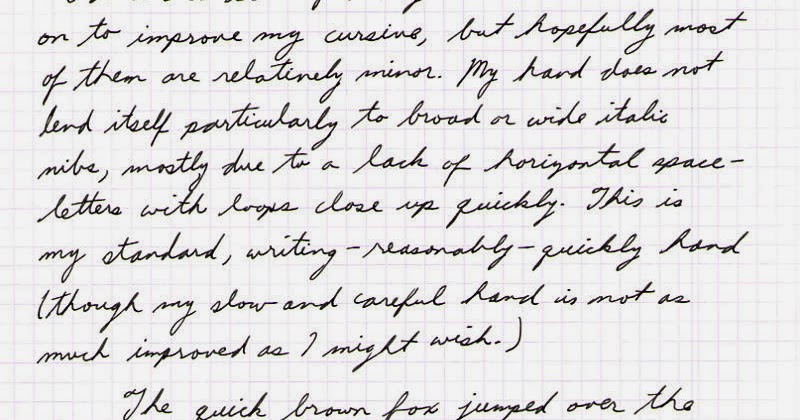 on to improve my cursive, but hopefully most
of them are relatively minor. My hand does not
lend itself particularly to broad or wide italic
nibs, mostly due to a lack of horizontal space-
letters with loops close up quickly. This is
my standard, writing-reasonably-quickly hand
(though my slow and careful hand is not as
much improved as I might wish.)
The quick brown fox jumped over the